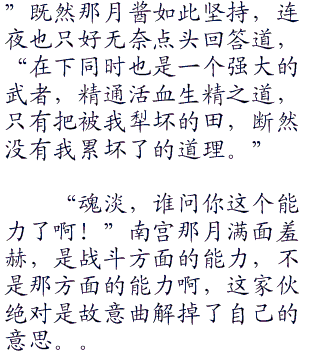 ”既然那月酱如此坚持，连
夜也只好无奈点头回答道，
“在下同时也是一个强大的
武者，精通活血生精之道，
只有把被我犁坏的田，断然
没有我累坏了的道理。”
“魂淡，谁问你这个能
力了啊！”南宫那月满面羞
赫，是战斗方面的能力，不
是那方面的能力啊，这家伙
绝对是故意曲解掉了自己的
意思。。